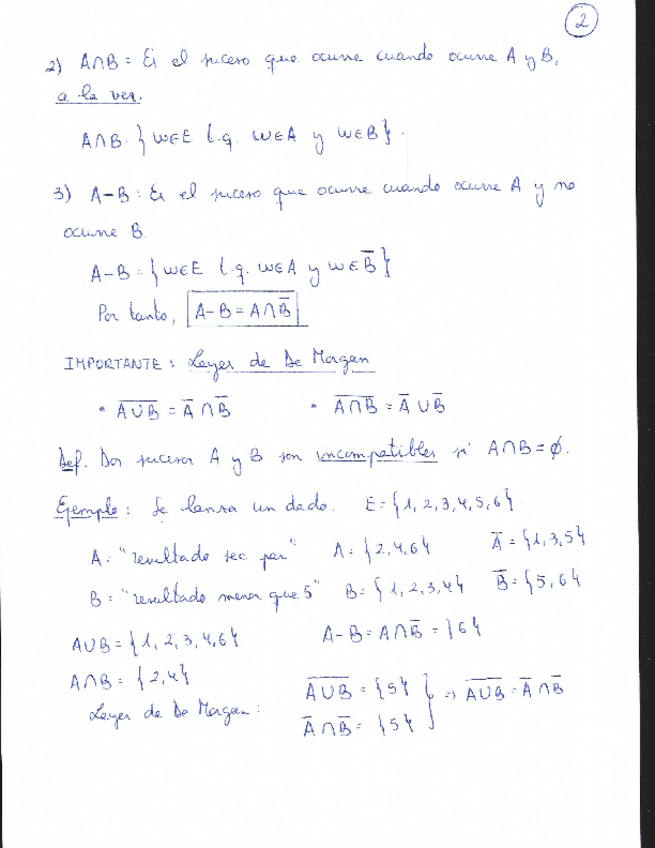 2
2) A∩B = Es el suceso que ocurre cuando ocurre A y B,
a la vez.
A∩B = {w∈E t.q. w∈A y w∈B}.
3) A-B: Es el suceso que ocurre cuando ocurre A y no
ocurre B.
A-B = {w∈E t.q. w∈A y w∈B̅}
Por tanto, A-B = A∩B̅
IMPORTANTE: Leyes de De Morgan
• A̅∪̅B̅ = A̅ ∩ B̅ • A̅∩̅B̅ = A̅ ∪ B̅
Def. Dos sucesos A y B son incompatibles si A∩B = ∅.
Ejemplo: Se lanza un dado. E = {1, 2, 3, 4, 5, 6}
A: "resultado sea par" A = {2, 4, 6} A̅ = {1, 3, 5}
B = "resultado menor que 5" B = {1, 2, 3, 4} B̅ = {5, 6}
A∪B = {1, 2, 3, 4, 6} A-B = A∩B̅ = {6}
A∩B = {2, 4}
Leyes de De Morgan: A̅∪̅B̅ = {5}
A̅∩B̅ = {5} } => A̅∪̅B̅ = A̅∩B̅